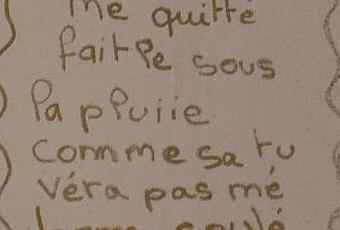 me quitté
fait le sous
la pluiie
comme sa tu
véra pas mé